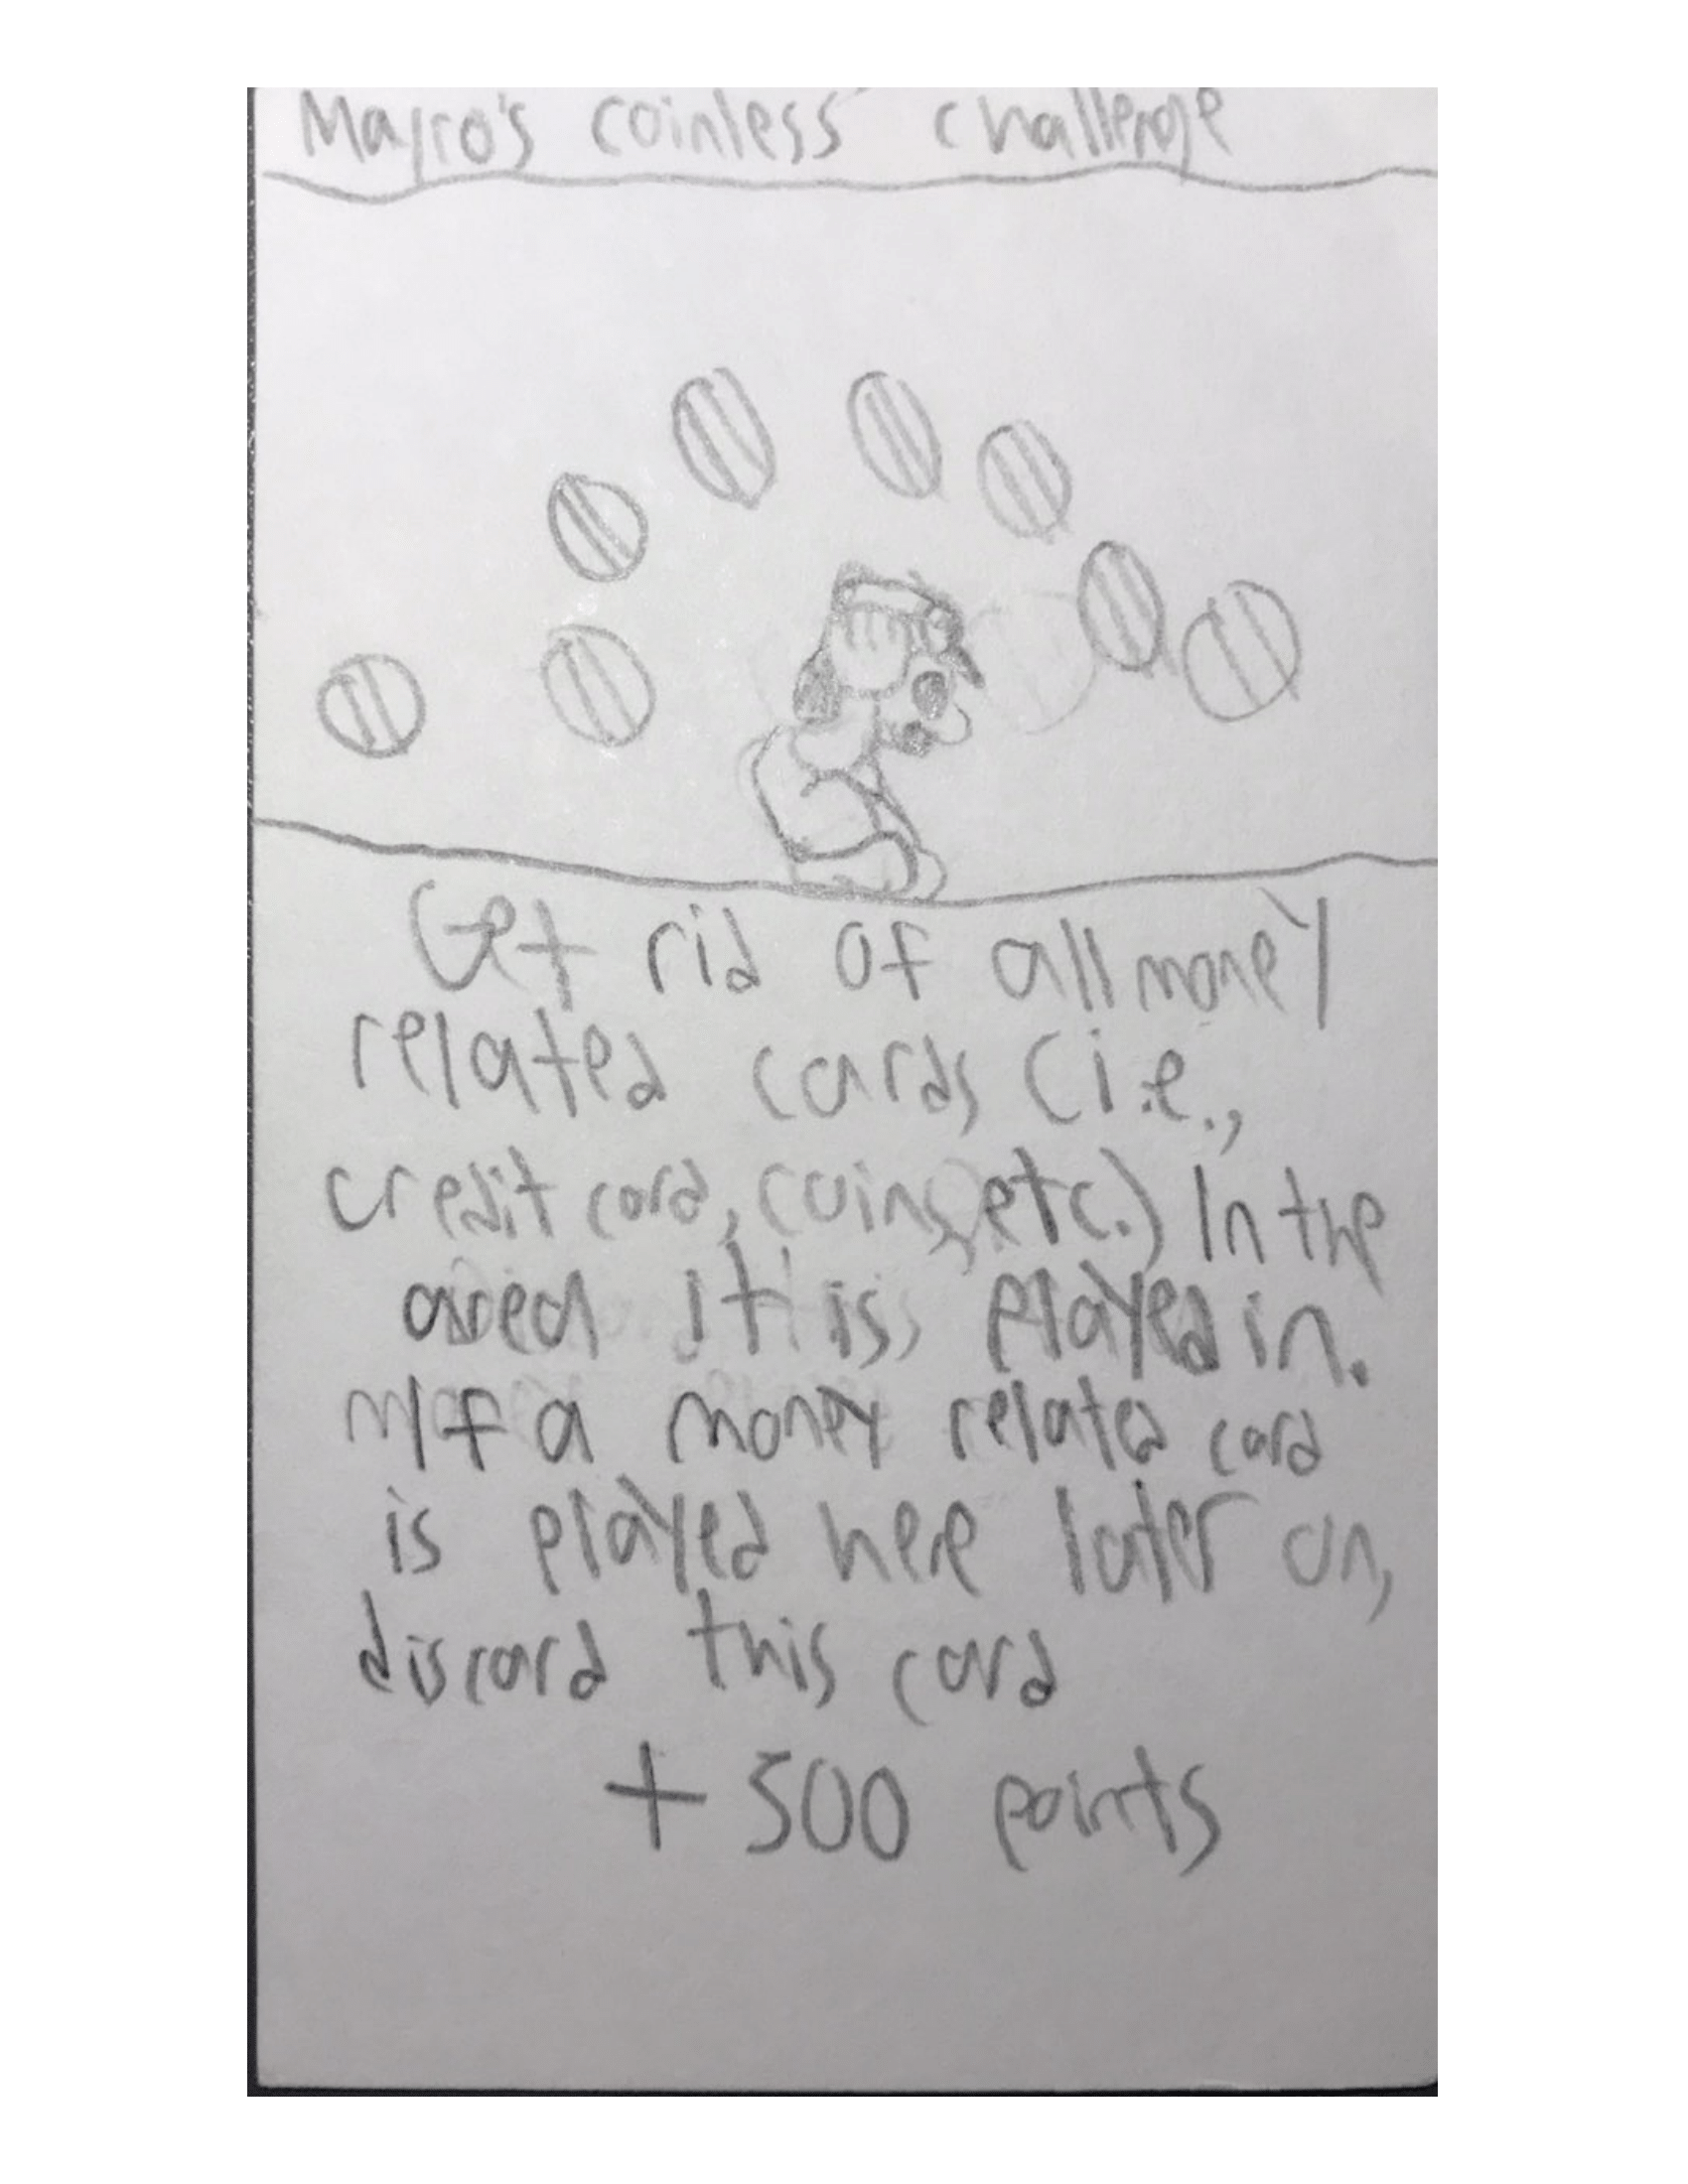 Mayro's coinless challenge
Get rid of all money
related cards (i.e.,
credit card, coins, etc.) In the
area it is played in.
If a money related card
is played here later on,
discard this card
+ 500 points